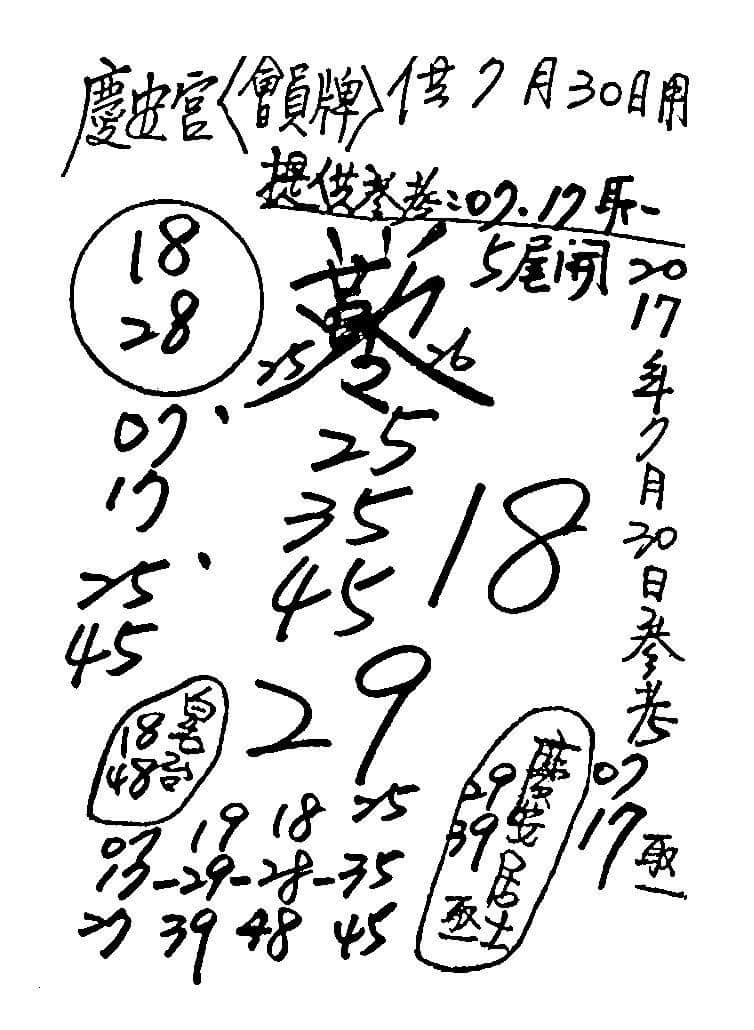 慶安宮〈會員牌〉供7月30日用
提供參考:07.17取一
5尾開
18
28
25 26
07、
17
25、
45
25
35
45
18
29
2017年7月30日參考
07
17取一
18
48
慶安居士
29
39
取一
07 19 18 25
17-29-28-35
27 39 48 45